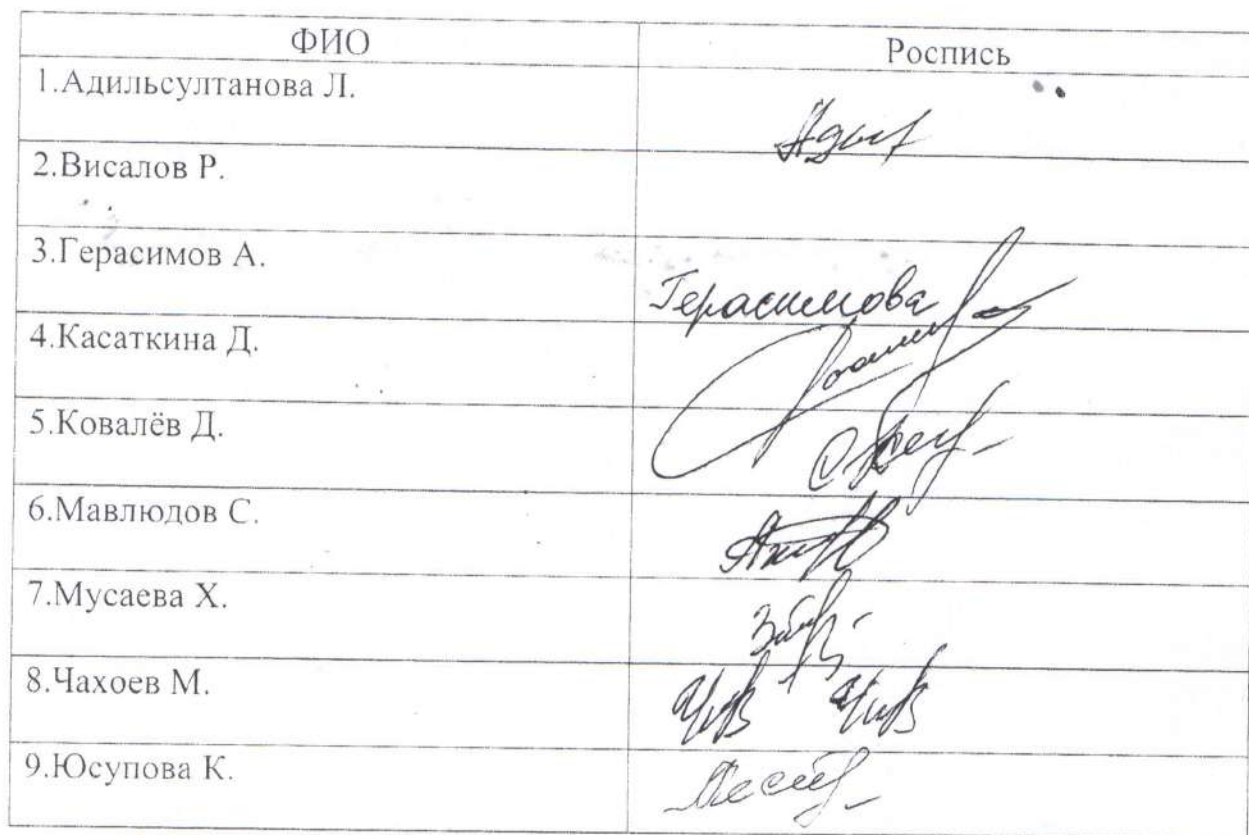 ФИО Роспись
1.Адильсултанова Л.
2.Висалов Р.
3.Герасимов А. Герасимова
4.Касаткина Д.
5.Ковалёв Д.
6.Мавлюдов С.
7.Мусаева Х.
8.Чахоев М.
9.Юсупова К.